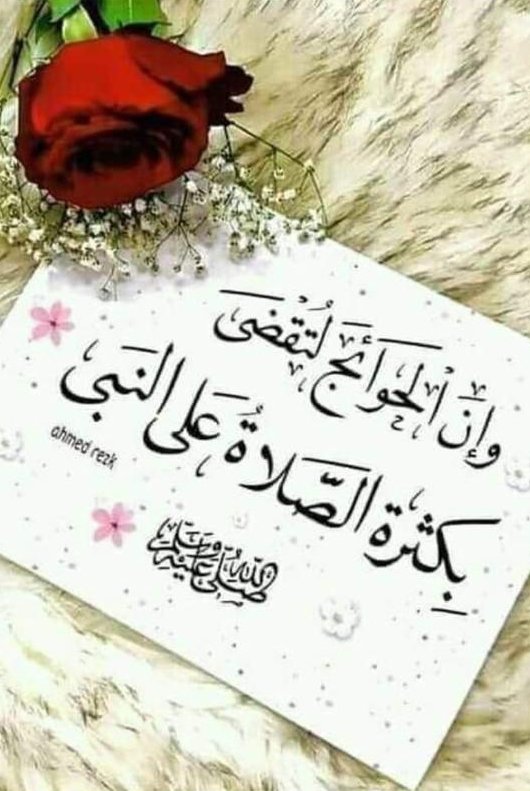 وإن الحوائج لتُقضى
بكثرة الصَّلاةُ على النبي
صلى الله عليه وسلم
ahmed rezk